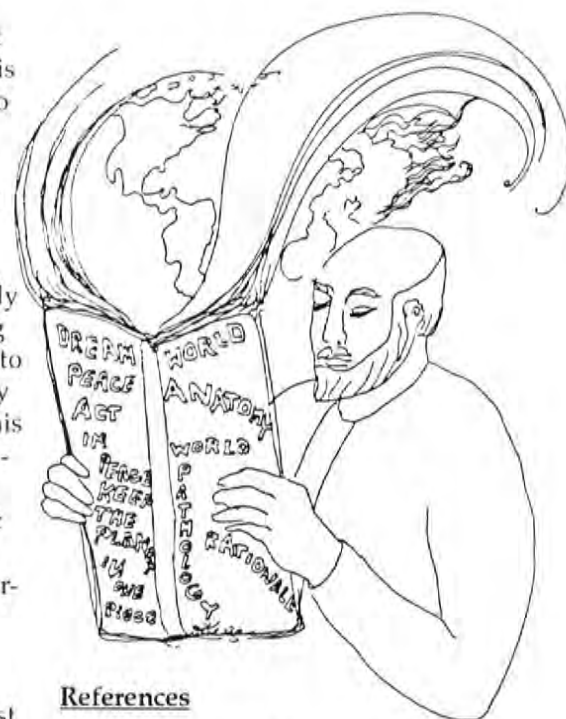 is
o
ly
g
to
y
his
-
r-
st
DREAM
PEACE
ACT
IN
KEEP
THE
PLANET
IN
ONE
WORLD
ANATOMY
WORLD
PATHOLOGY
RATIONALE
References